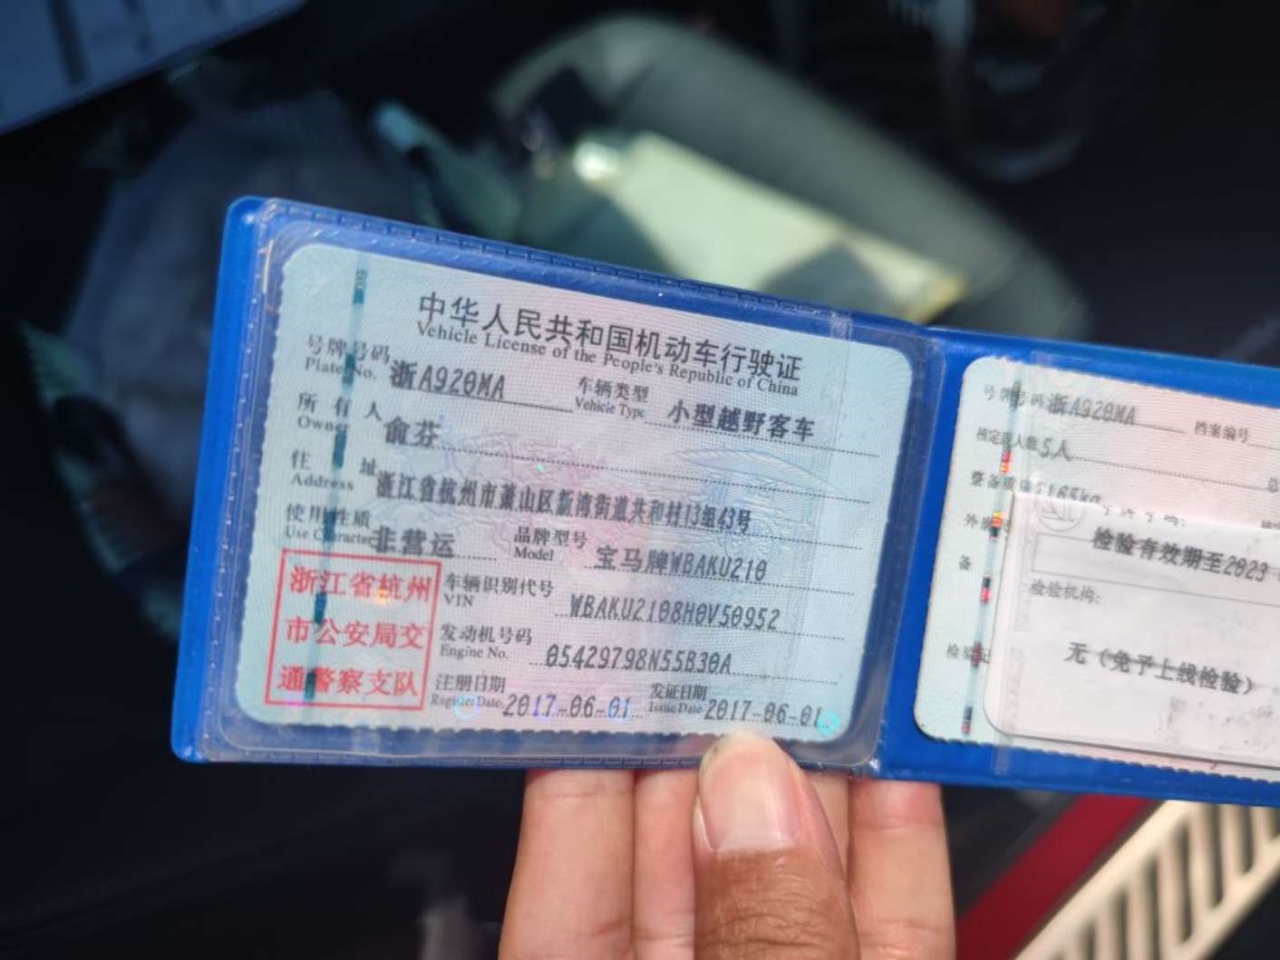 中华人民共和国机动车行驶证
Vehicle License of the People's Republic of China
号牌号码 浙A920MA 车辆类型 小型越野客车
Plate No. Vehicle Type
所有人 俞芬
Owner
住址 浙江省杭州市萧山区新湾街道共和村13组43号
Address
使用性质 非营运 品牌型号 宝马牌WBAKU210
Use Character Model
浙江省杭州
市公安局交
通警察支队
车辆识别代号 WBAKU2108H0V50952
VIN
发动机号码 05429798N55B30A
Engine No.
注册日期 2017-06-01 发证日期 2017-06-01
Register Date Issue Date
号牌号码 浙A920MA 档案编号
核定载人数 5人
整备质量
外廓
备
号牌号码:
检验有效期至2023
检验机构:
无（免予上线检验）
检验记